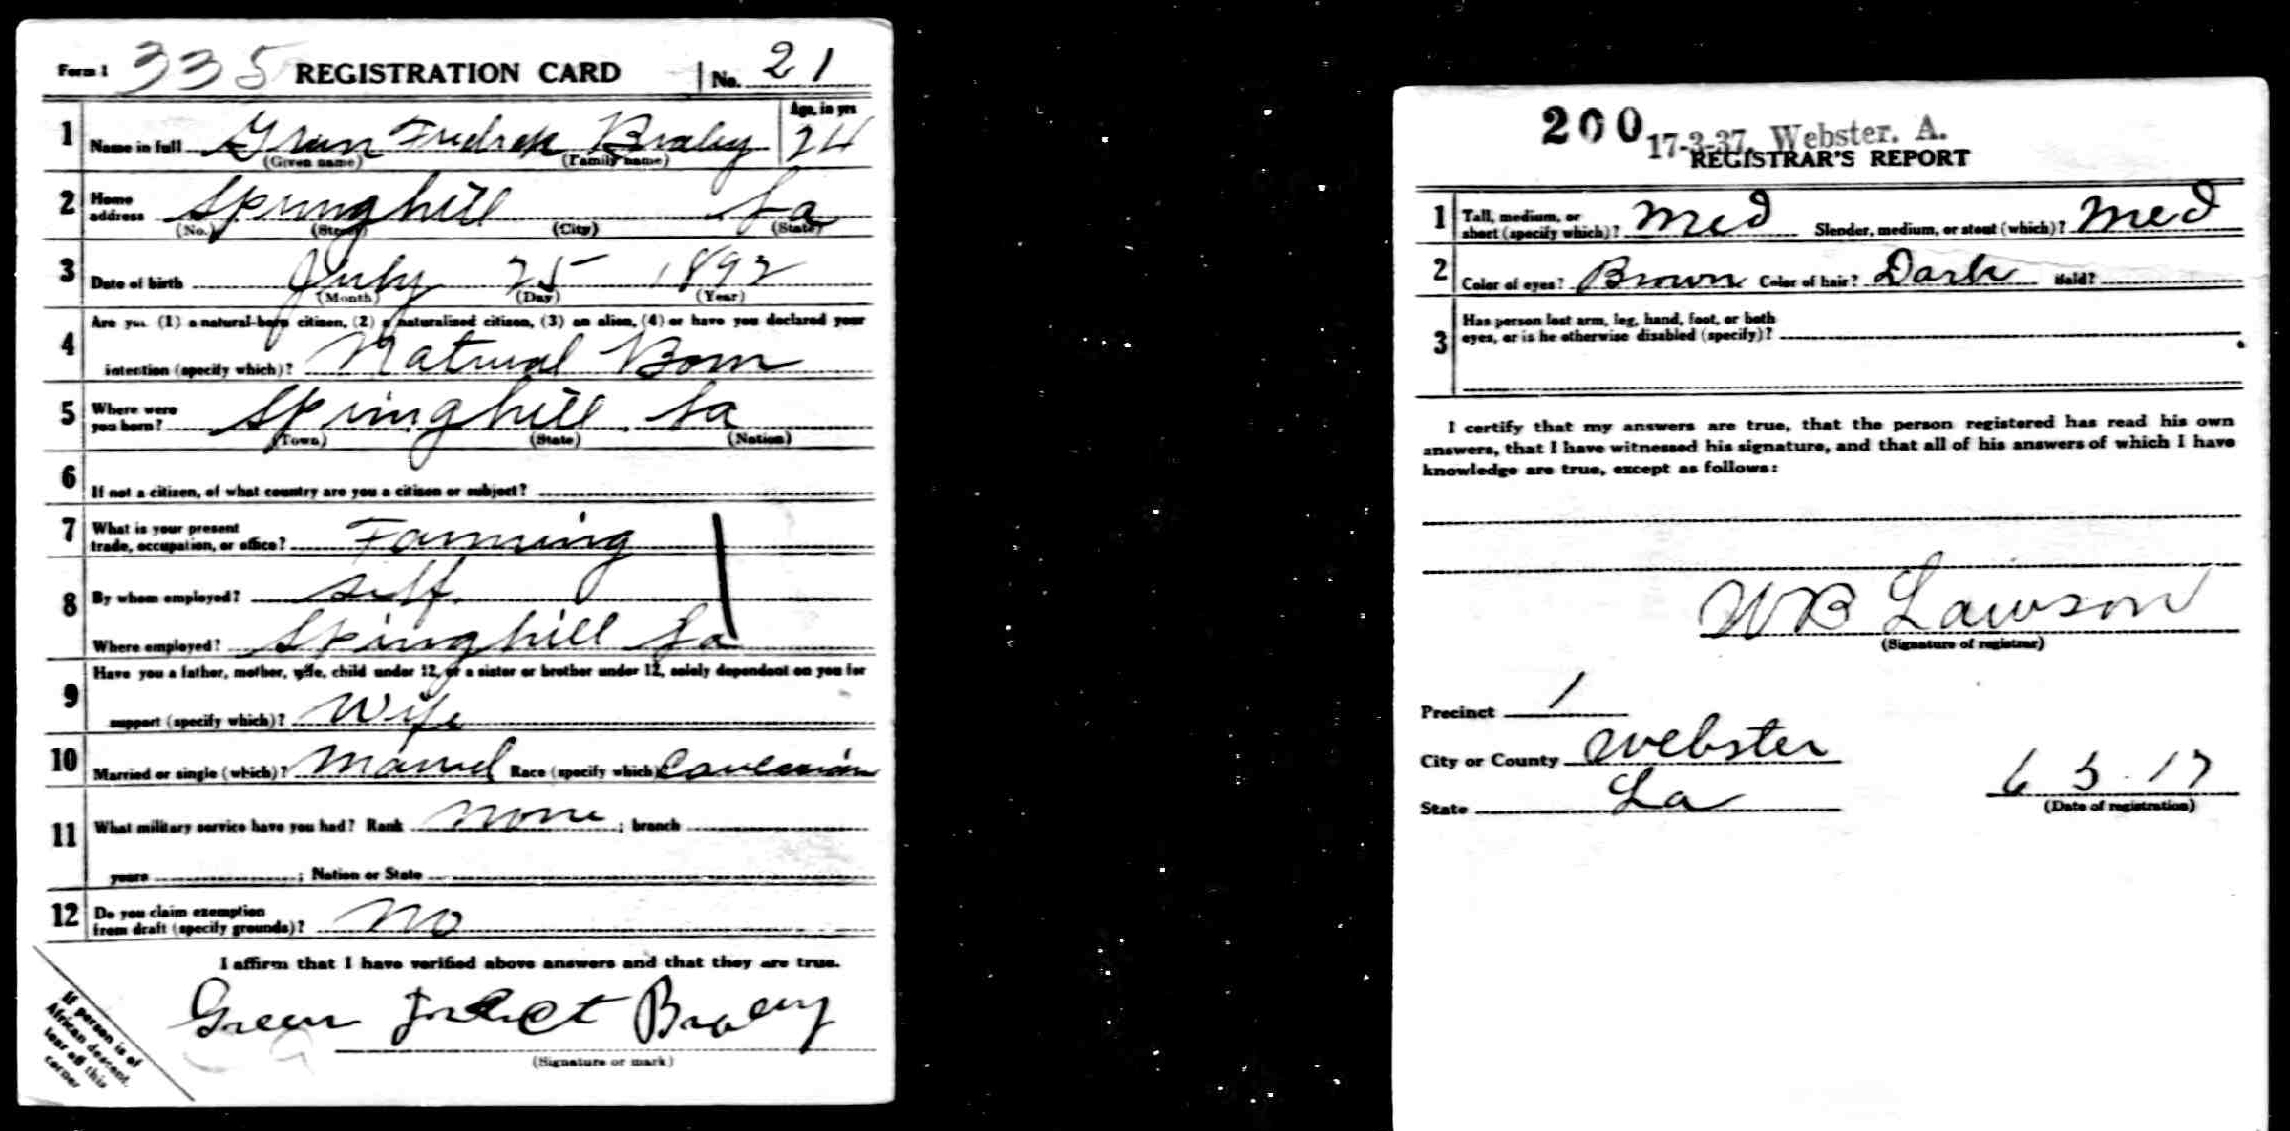 Form 1 335 REGISTRATION CARD No. 21
1 Name in full Green Fredrek Braley Age, in yrs 24
(Given name) (Family name)
2 Home address Springhill La
(No.) (Street) (City) (State)
3 Date of birth July 25 1892
(Month) (Day) (Year)
4 Are you (1) a natural-born citizen, (2) a naturalized citizen, (3) an alien, (4) or have you declared your
intention (specify which)? Natural Born
5 Where were you born? Springhill La
(Town) (State) (Nation)
6 If not a citizen, of what country are you a citizen or subject?
7 What is your present
trade, occupation, or office? Farming
8 By whom employed? self.
Where employed? Springhill La
9 Have you a father, mother, wife, child under 12, or a sister or brother under 12, solely dependent on you for
support (specify which)? Wife
10 Married or single (which)? Married Race (specify which) Caucasian
11 What military service have you had? Rank None ; branch
years ; Nation or State
12 Do you claim exemption
from draft (specify grounds)? No
I affirm that I have verified above answers and that they are true.
Green Braley
(Signature or mark)
If person is of
African descent,
tear off this
corner
200 17-3-37. Webster. A.
REGISTRAR'S REPORT
1 Tall, medium, or
short (specify which)? Med Slender, medium, or stout (which)? Med
2 Color of eyes? Brown Color of hair? Dark Bald?
3 Has person lost arm, leg, hand, foot, or both
eyes, or is he otherwise disabled (specify)?
I certify that my answers are true, that the person registered has read his own
answers, that I have witnessed his signature, and that all of his answers of which I have
knowledge are true, except as follows:
WB Lawson
(Signature of registrar)
Precinct 1
City or County Webster
State La 6 5 17
(Date of registration)